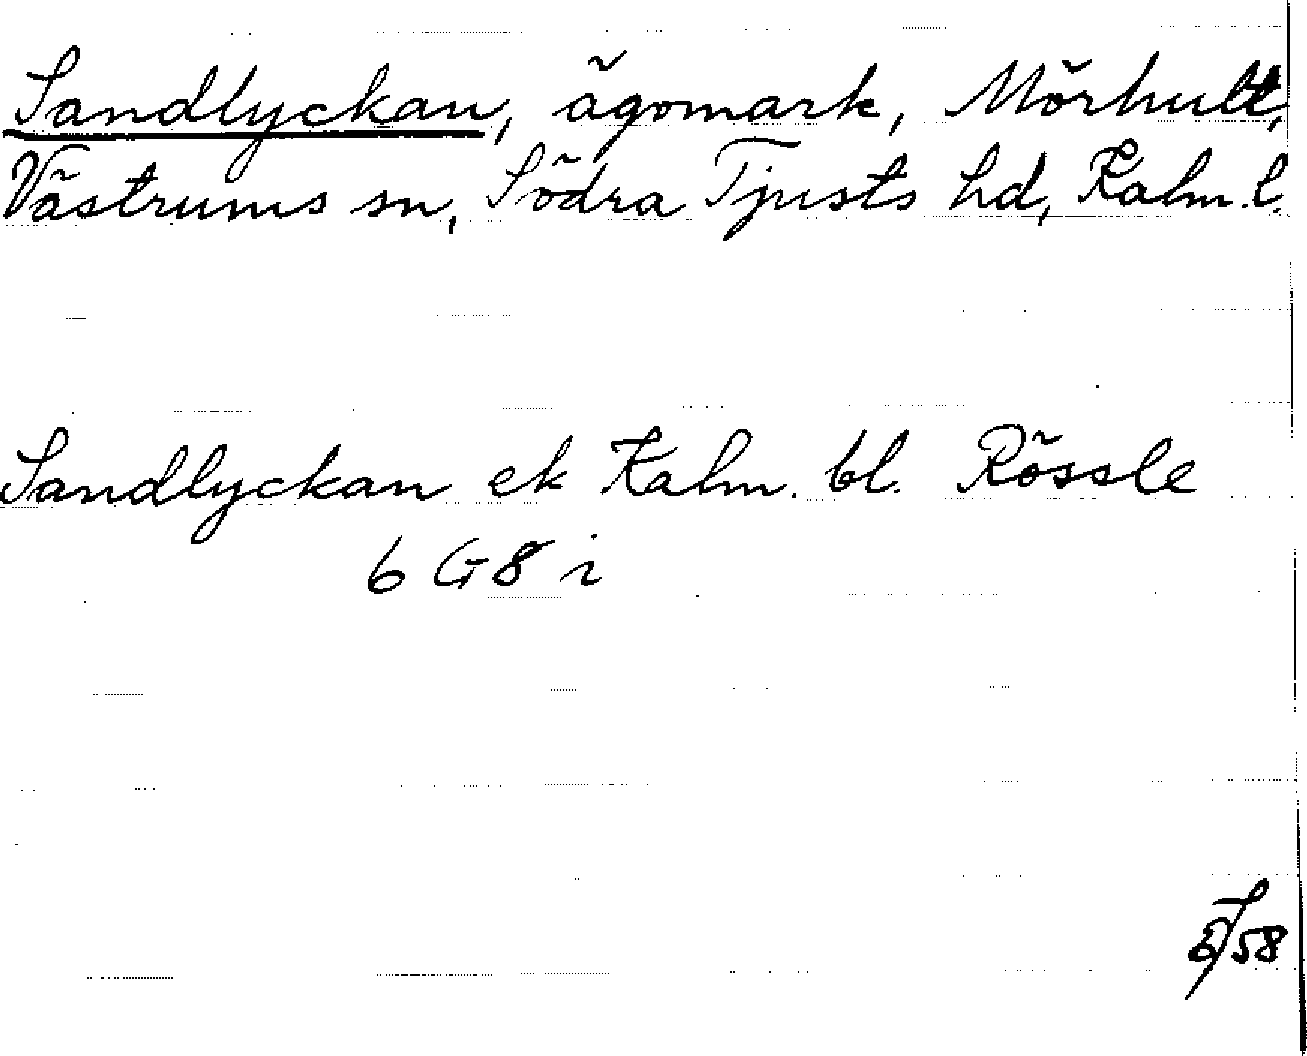 Sandlyckan, ägomark, Mörhult,
Västrums sn, Södra Tjusts hd, Kalm. l.
Sandlyckan ek Kalm. bl. Rössle
6 G 8 i